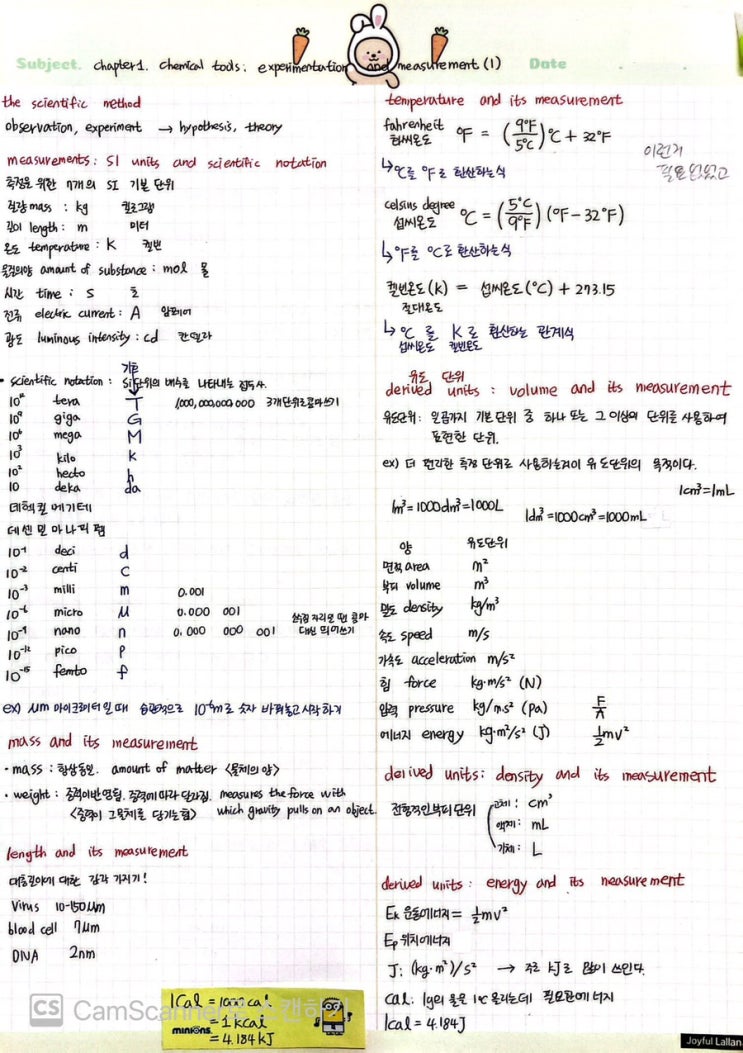 Subject. chapter1. chemical tools: experimentation and measurement (1) Date
the scientific method
observation, experiment → hypothesis, theory
measurements: SI units and scientific notation
측정을 위한 7개의 SI 기본 단위
질량 mass : kg 킬로그램
길이 length : m 미터
온도 temperature : K 켈빈
물질의양 amount of substance : mol 몰
시간 time : s 초
전류 electric current : A 암페어
광도 luminous intensity : cd 칸델라
기호
• scientific notation : SI단위의 배수를 나타내는 접두사.
10¹² tera T 1,000,000,000,000 3개단위로콤마쓰기
10⁹ giga G
10⁶ mega M
10³ kilo k
10² hecto h
10 deka da
데헥킬메기테
데센밀마나피펨
10⁻¹ deci d
10⁻² centi c
10⁻³ milli m 0.001
10⁻⁶ micro μ 0.000 001
10⁻⁹ nano n 0.000 000 001
숫자 자리온 땐 콤마
대신 띄어쓰기
10⁻¹² pico p
10⁻¹⁵ femto f
ex) μm 마이크로미터일때 습관적으로 10⁻⁶m로 숫자 바꿔놓고시작하기
mass and its measurement
• mass : 항상동일. amount of matter <물체의 양>
• weight : 중력이반영됨. 중력에따라 달라짐. measures the force with
<중력이 그물체를 당기는힘> which gravity pulls on an object.
length and its measurement
대충길이에 대한 감각 가지기!
Virus 10-150μm
blood cell 7μm
DNA 2nm
1Cal = 1000cal
= 1kcal
= 4.184kJ
minions.
CS CamScanner로 스캔하기
temperature and its measurement
fahrenheit
화씨온도
°F = (9°F/5°C)°C + 32°F
이런거
필요없었고
↳ °C를 °F로 환산하는식
celsius degree
섭씨온도
°C = (5°C/9°F)(°F-32°F)
↳ °F를 °C로 환산하는식
켈빈온도(K) = 섭씨온도(°C) + 273.15
절대온도
↳ °C 를 K로 환산하는 관계식
섭씨온도 켈빈온도
유도 단위
derived units : volume and its measurement
유도단위: 일곱가지 기본단위 중 하나 또는 그 이상의 단위를 사용하여
표현한 단위.
ex) 더 편리한 측정 단위로 사용하는것이 유도단위의 목적이다.
1cm³=1mL
1m³=1000dm³=1000L
1dm³=1000cm³=1000mL
양 유도단위
면적 area m²
부피 volume m³
밀도 density kg/m³
속도 speed m/s
가속도 acceleration m/s²
힘 force kg·m/s² (N)
압력 pressure kg/m·s² (Pa) F/A
에너지 energy kg·m²/s² (J) ½mv²
derived units: density and its measurement
전형적인부피단위
고체: cm³
액체: mL
기체: L
derived units: energy and its measurement
Ek 운동에너지= ½mv²
Ep 위치에너지
J: (kg·m²)/s² → 주로 kJ로 많이 쓰인다.
cal: 1g의 물은 1℃ 올리는데 필요한에너지
1cal = 4.184J
Joyful Lallan